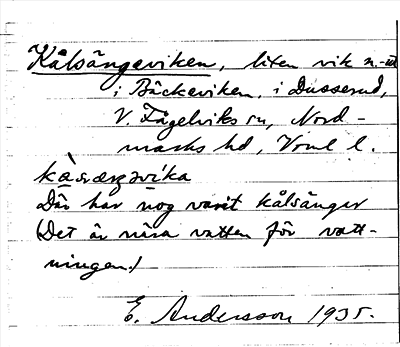 Kålsängaviken, liten vik n. ut
i Bäckeviken, i Dusserud,
V. Fågelviks sn, Nord-
marks hd, Vrml l.
Där har nog varit kålsängar
(Det är nära vatten för vatt-
ningen.)
E. Andersson 1935.